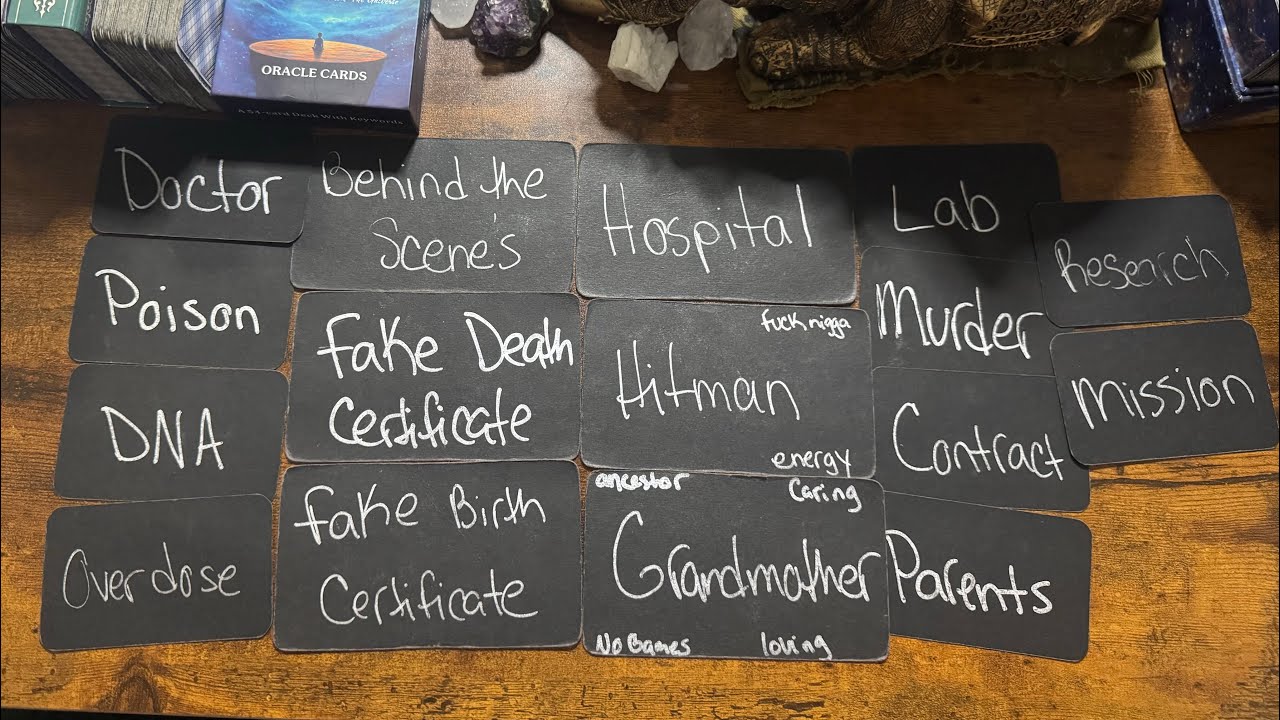 ORACLE CARDS
A 54-card Deck With Keywords
Doctor
Behind the
Scene's
Hospital
Lab
Research
Poison
Fake Death
Certificate
fuck nigga
Hitman
energy
Murder
Mission
DNA
Contract
Overdose
Fake Birth
Certificate
ancestor
Caring
Grandmother
No Games
loving
Parents